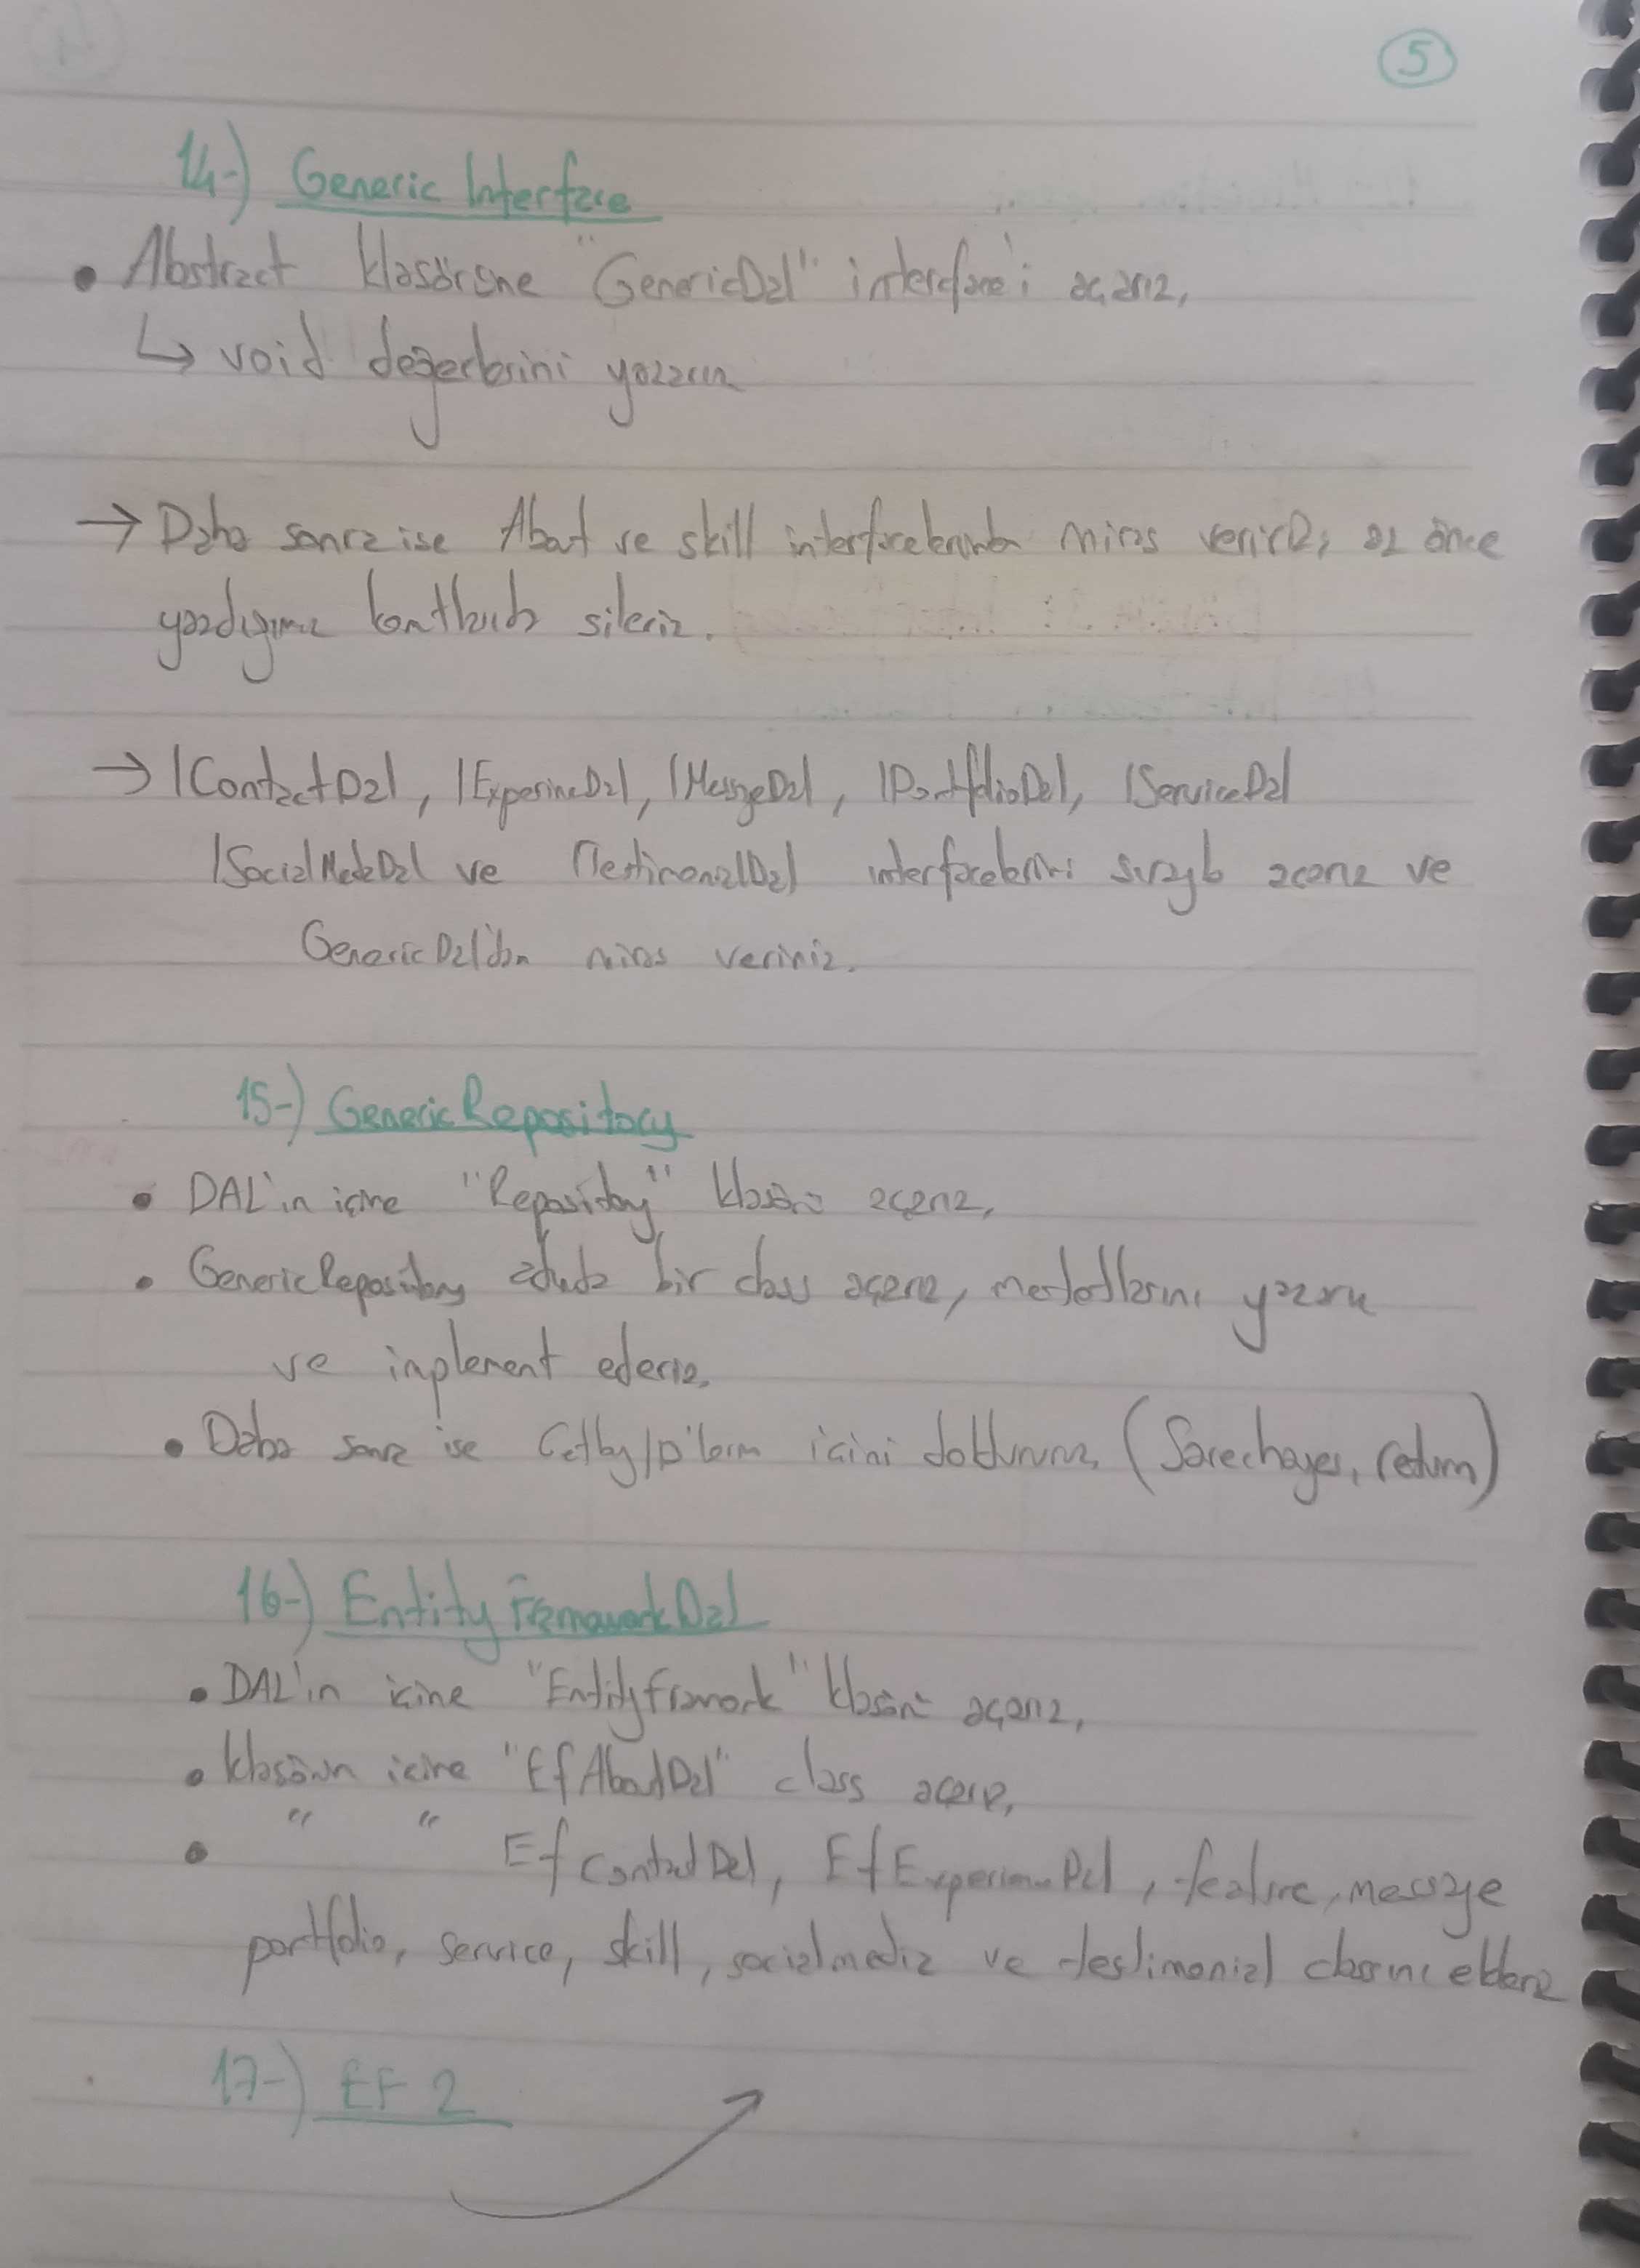 5
14-) Generic Interface
• Abstract klasörüne "GenericDal" interface'i açarız,
↳ void değerlerini yazarız
→ Daha sonra ise About ve skill interfacelerinden miras veririz, az önce
yazdığımız komutlarıda sileriz.
→ IContactDal, IExperineDal, IMessageDal, IPortfolioDal, IServiceDal
ISocialMediaDal ve ITestimonialDal interfacelerini sırayla açarız ve
GenericDal'dan miras veririz.
15-) Generic Repository
• DAL'ın içine "Repository" klasörü açarız,
• GenericRepository adında bir class açarız, metodlarını yazarız
ve implement ederiz,
• Daha sonra ise GetbyID'lerin içini doldururuz, (Savechanges, return)
16-) Entity Framework Dal
• DAL'ın içine "EntityFramework" klasörü açarız,
• klasörün içine "EfAboutDal" class açarız,
• " " EfContactDal, EfExperienceDal, feature, message
portfolio, service, skill, socialmedia ve testimonial classını ekleriz
17-) EF 2